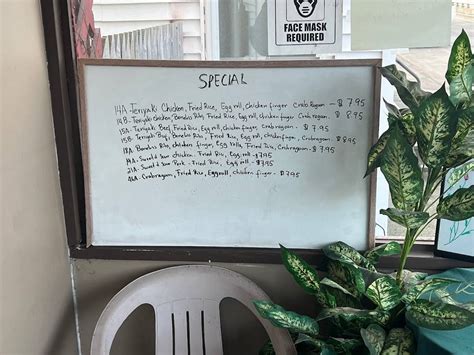 FACE MASK
REQUIRED
SPECIAL
14A Teriyaki Chicken, Fried Rice, Egg roll, chicken finger Crab Ragoon - $7.95
14B - Teriyaki chicken, Boneless Ribs, Fried Rice, Egg roll, chicken finger Crab Ragoon. - $8.95
15A - Teriyaki Beef, Fried Rice, Egg roll, chicken finger, Crab ragoon - $7.95
15B - Teriyaki Beef, Boneless Ribs, Fried Rice, Egg roll, chicken finger, Crab ragoon - $8.95
18A - Boneless Ribs, chicken finger, Egg Rolls, Fried Rice, Crab ragoon - $7.95
19A - Sweet & Sour chicken - Fried Rice, Egg roll - $7.95
21A - Sweet & Sour Pork - Fried Rice, Egg roll - $7.95
- Crab ragoon, Fried Rice, Egg roll, chicken finger - $7.95